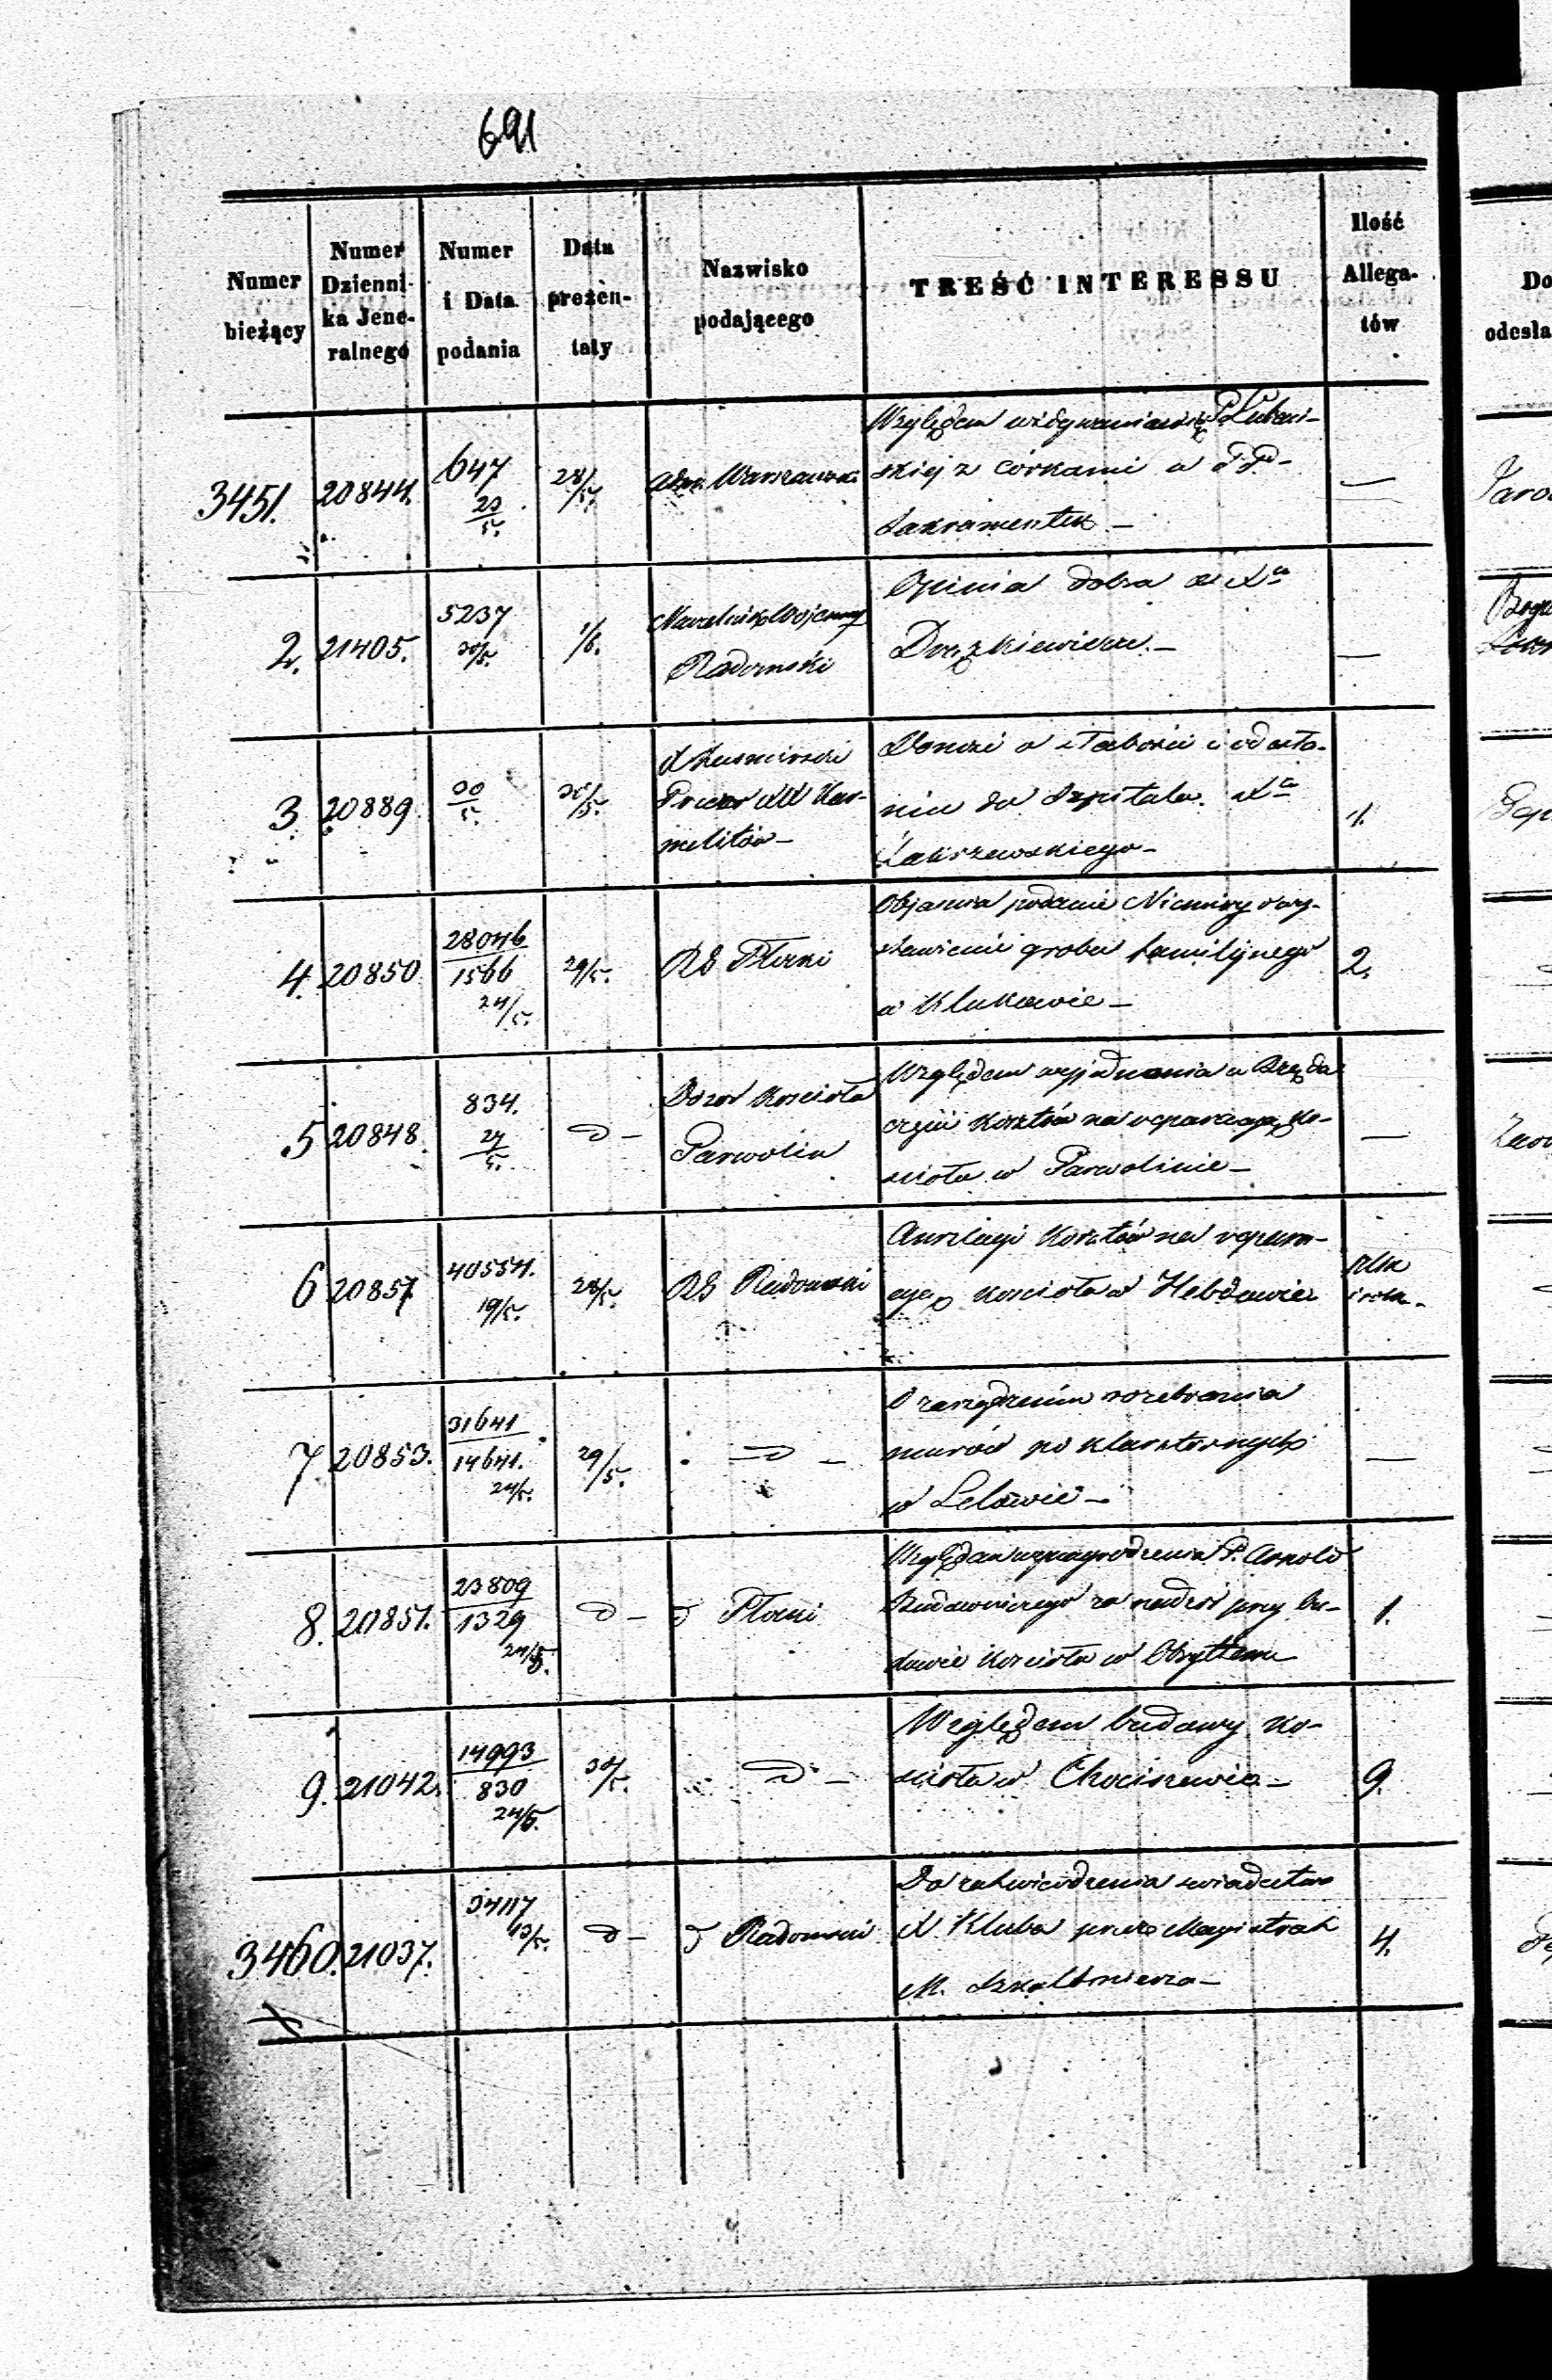 691
Numer bieżący
Numer Dzienni-ka Jene-ralnego
Numer i Data podania
Data prezen-taty
Nazwisko podającego
TREŚĆ INTERESSU
Ilość Allega-tów
Do
odesła
3451. 20844. 647 23/5. 28/5. Adm. Warszawski
Względem widywania się P. Lubeń-
skiej z córkami u PP-
Sakramentek —
—
2. 21405. 5237 30/5. 1/6. Naczelnik Wojenny
Radomski
Opinia dobra
—
3. 20889 30/5. 30/5.
Przeor XX Kar-
melitów —
Donosi o słabości i odesła-
niu do Szpitala Xa
Zakrzewskiego —
1.
4. 20850 28046/1566 24/5. 29/5. RG Płocki
Objaśnia podanie Niemiry o wy-
stawienie grobu familijnego
w Klukowie —
2.
5 20848 834. 27/5. d — Dozór Kościoła
Parwolin
Względem wyjednania u Rządu
kosztów na reparacyą Ko-
ścioła w Parwolinie —
—
6 20857 40554. 19/5. 28/5. RG Radomski
Anszlagi Kosztów na repara-
cyą Kościoła w Hebdowie
7. 20853. 31641/14641. 24/5. 29/5. — d —
O zarządzeniu rozebrania
murów po klasztornych
w Lelowie —
—
8. 20851. 23809/1329 24/5. d — d Płocki
Względem wynagrodzenia P. Arnold
Budowniczego za nadzór przy bu-
dowie Kościoła w Obrytem
1.
9. 21042. 14993/830 24/5. 30/5. d —
Względem budowy Ko-
ścioła w Chociszewie —
9.
3460. 21037. 34117 13/5. d — d Radomski
Do zatwierdzenia świadectwo
X. Kluba przez Magistrat
M. Szkalbmierza —
4.